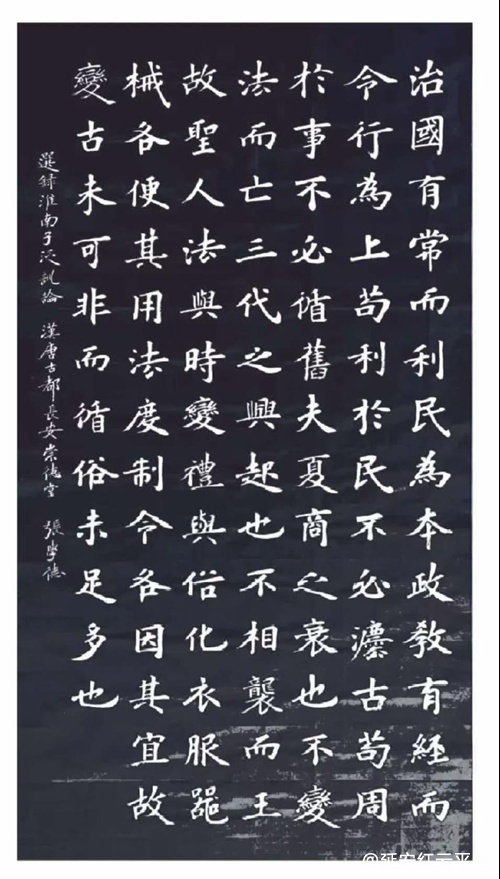 治國有常而利民為本政教有經而
令行為上苟利於民不必灋古苟周
於事不必循舊夫夏商之衰也不變
法而亡三代之興起也不相襲而王
故聖人法與時變禮與俗化衣服器
械各便其用法度制令各因其宜故
變古未可非而循俗未足多也
選錄淮南子泛訓論 漢唐古都長安崇德堂 張學德
@延安红云平